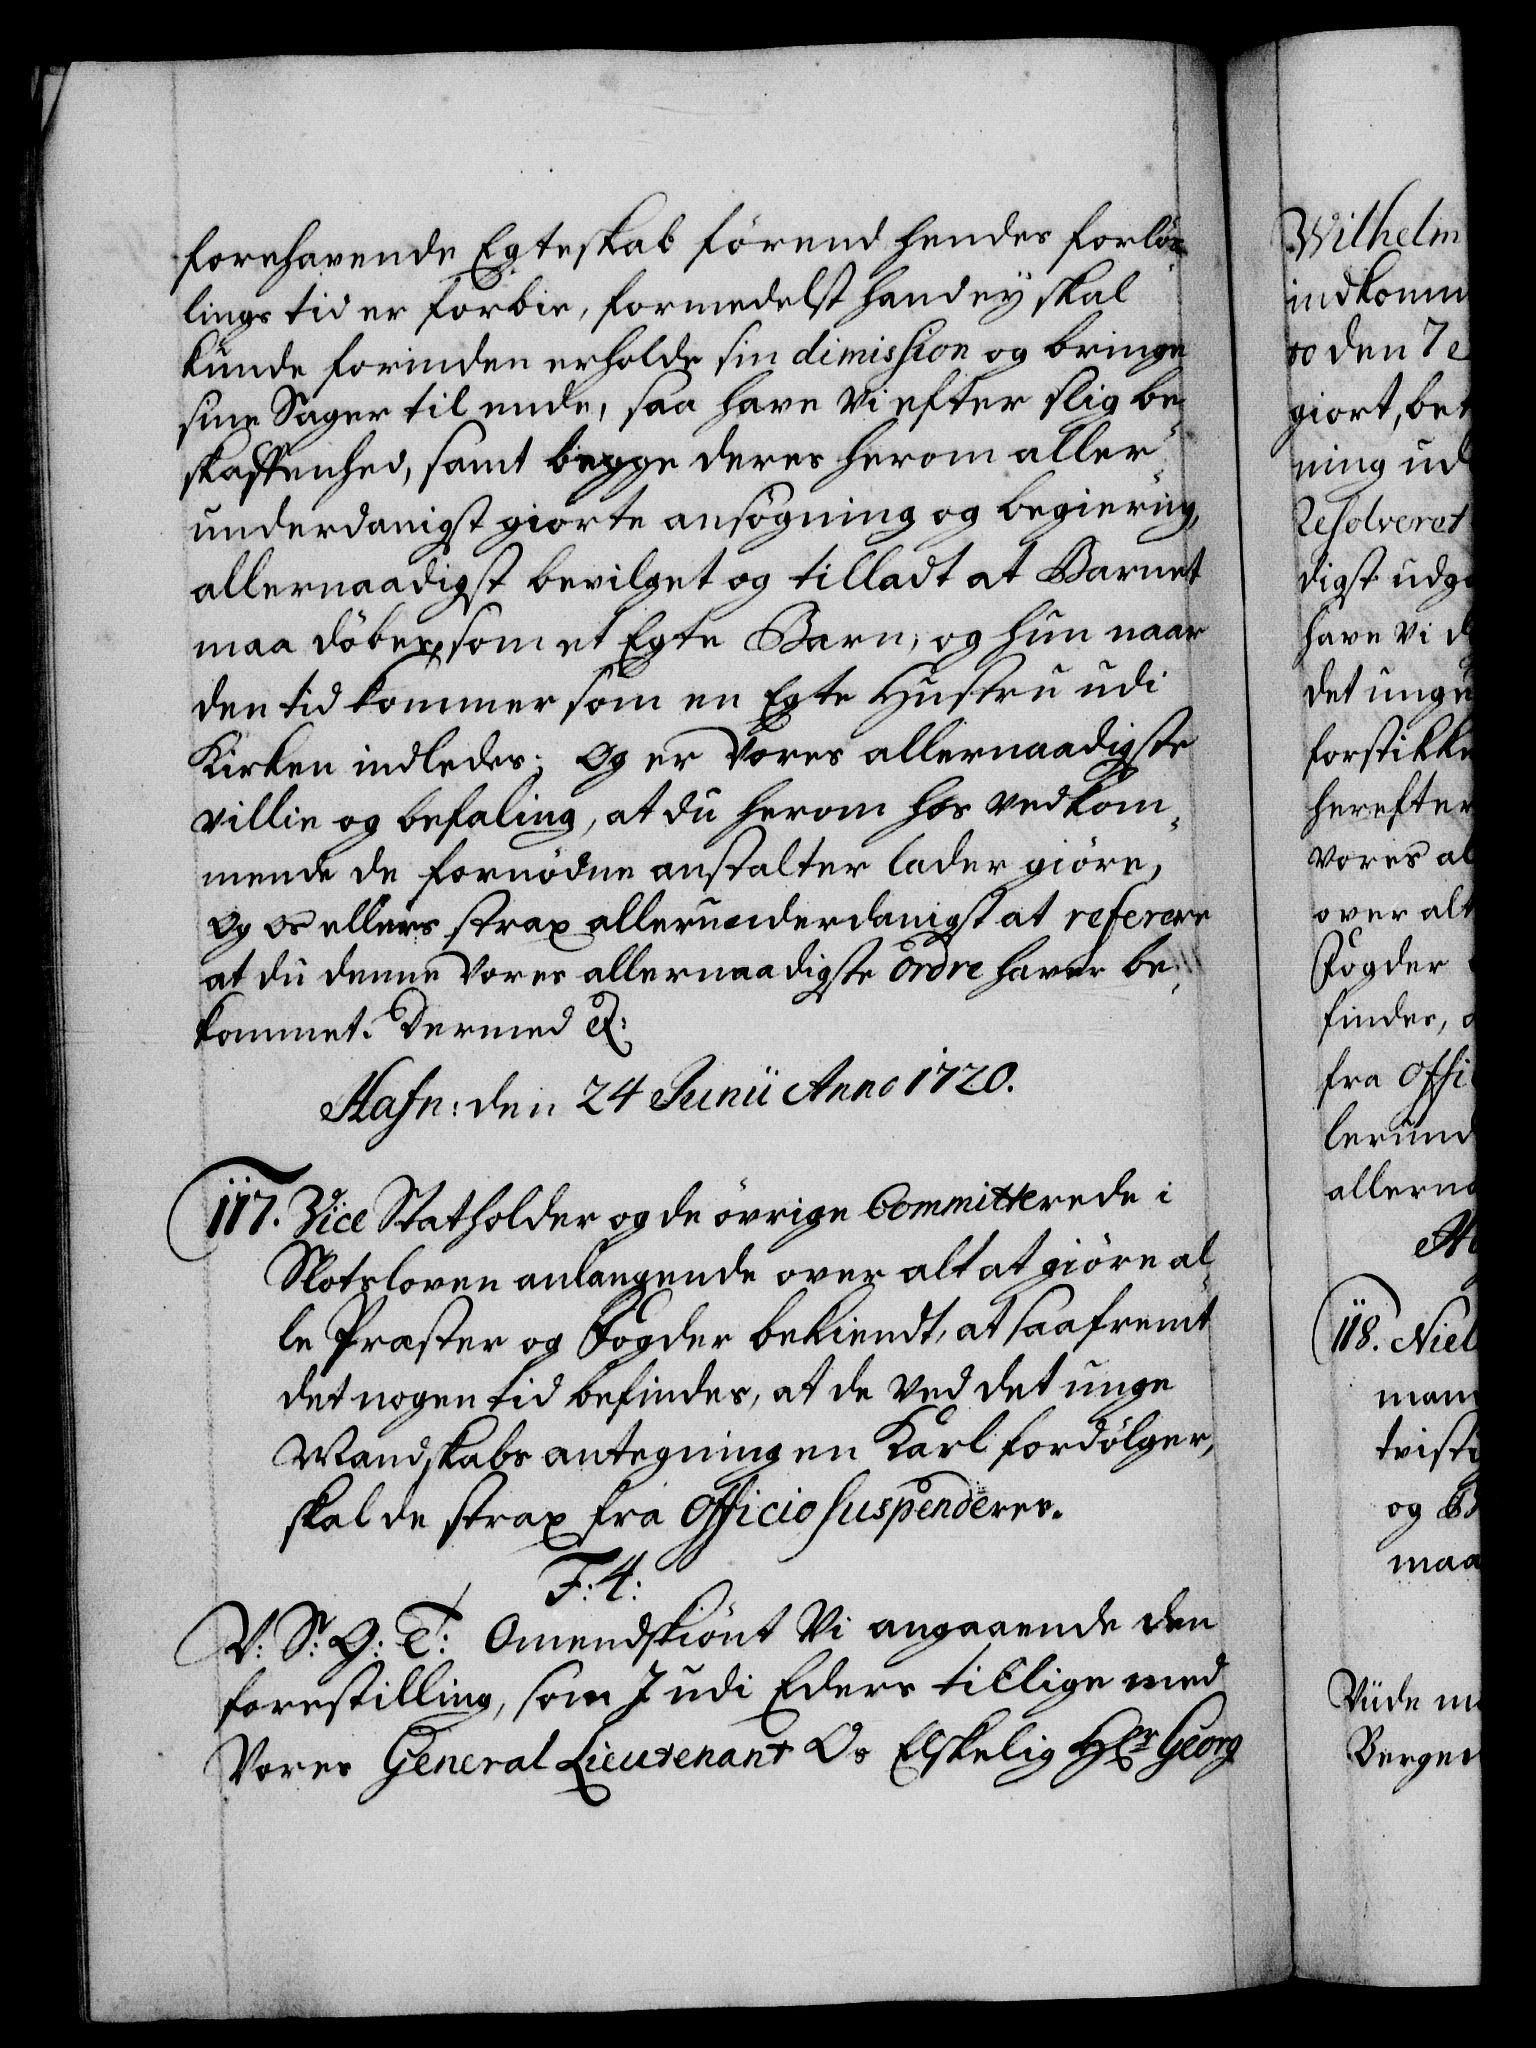 forehavende Egteskab förend hendes forlös-
lings tid er forbie, formedelst hand ey skal
kunde forinden erholde sin dimission og bringe
sine Sager til ende, saa have Vi efter slig be-
skaffenhed, samt begge deres herom aller-
underdanigst giorte ansögning og begiering,
allernaadigst bevilget og tilladt at Barnet
maa döbes, som et Egte Barn, og hun naar
den tid kommer som en Egte Hustru udi
Kirken indledes; Og er Vores allernaadigste
villie og befaling, at du herom hos vedkom-
mende de fornödne anstalter lader giöre,
og os ellers strax allerunderdanigst at referere
at du denne Vores allernaadigste Ordre haver be-
kommet. Dermed &:
Hafn: den 24 Junii Anno 1720.
117. Vice Statholder og de övrige Committerede i
Slotsloven anlangende over alt at giöre al-
le Præster og Fogder bekiendt, at saafremt
det nogen tid befindes, at de ved det unge
Mandskabs antegning en Karl fordölger,
skal de strax fra Officio suspenderes.
F: 4:
V: S: G: T: Omendskiönt Vi angaaende den
forestilling, som I udi Eders tillige med
Vores General Lieutenant Os Elskelig Hr Georg
Wilhelm
indkomm
so den 7e
giort, bet
ning ud
Resolveret
digst udg
have vi d
det unge
forstikke
herefter
Vores al
over alt
Fogder
findes,
fra Offi
lerund
allerna
118. Niel
man
tvisti
og
maa
Viide m
Bergen